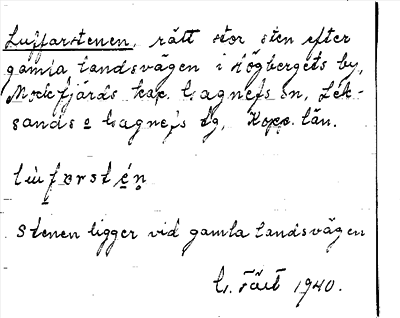 Luffarstenen, rätt stor sten efter
gamla landsvägen i Högbergets by,
Mockfjärds kap. Gagnefs sn, Lek-
sands o Gagnefs tg, Kopp. län.
stén
Stenen ligger vid gamla landsvägen
G. 1940.